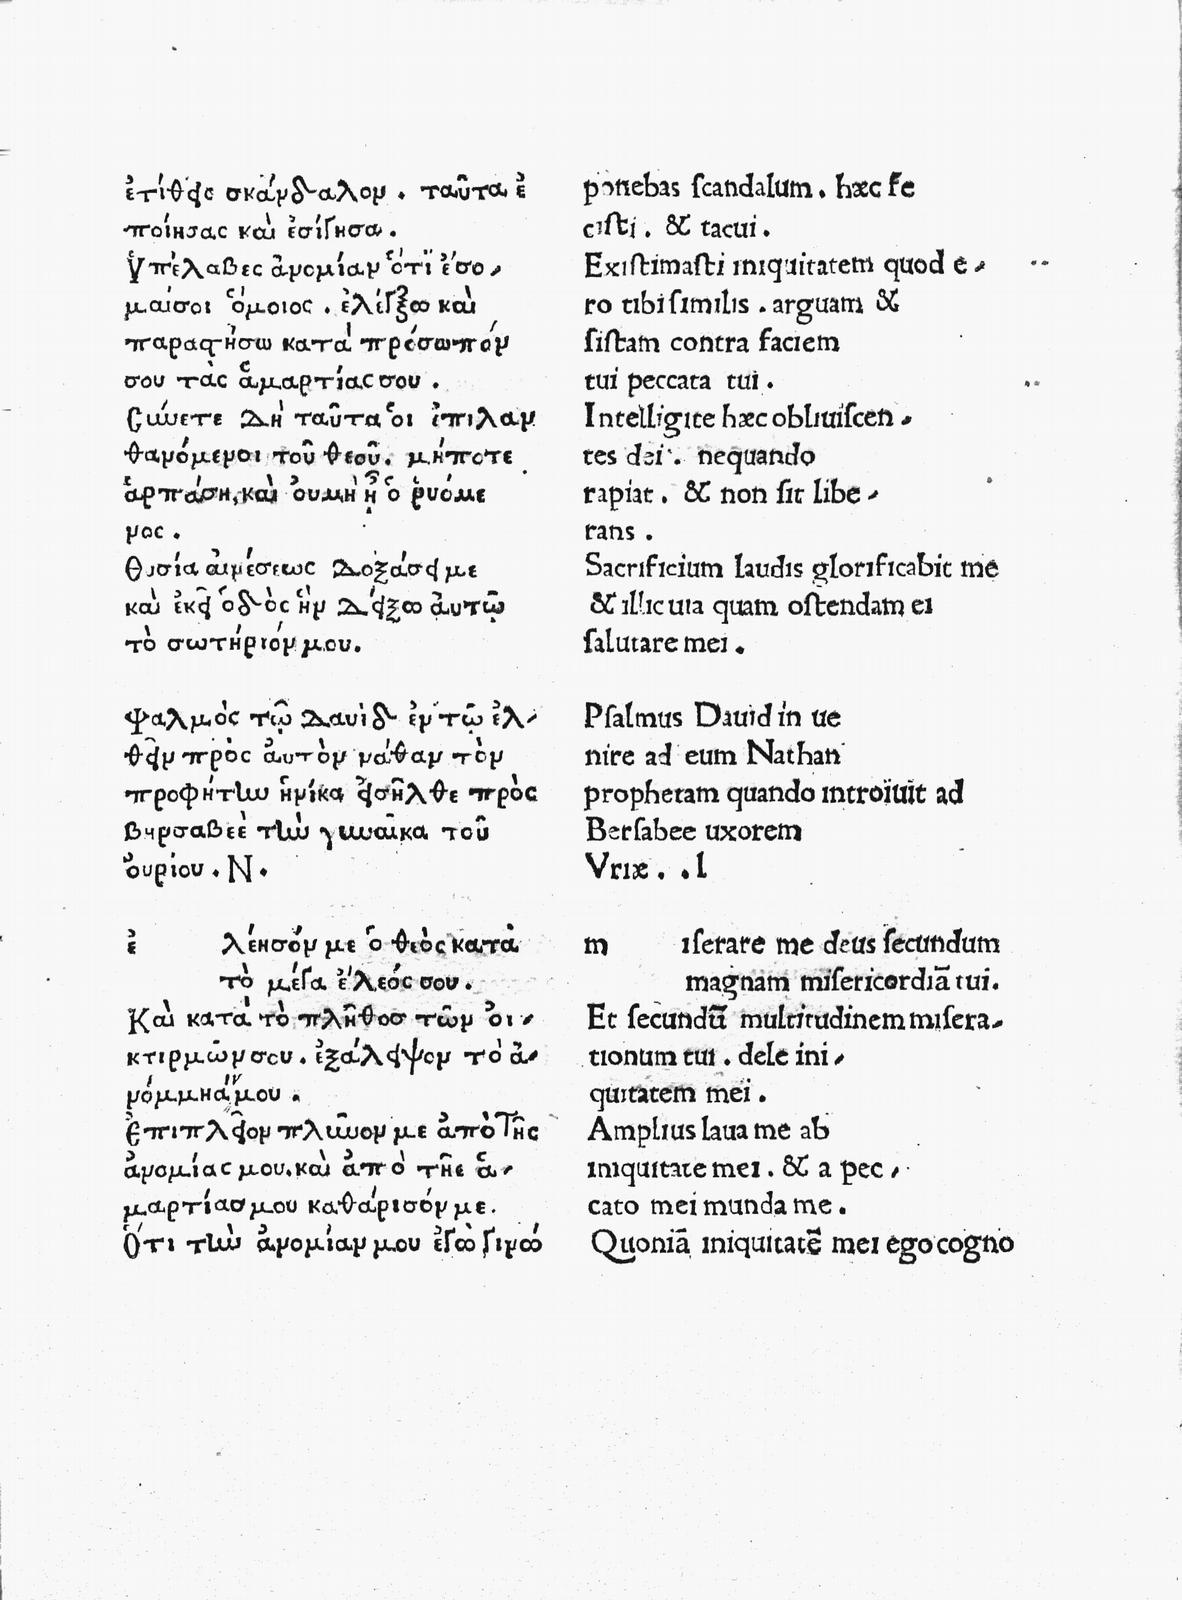 ἐτίθεις σκάνδαλον . ταῦτα ἐ
ποίησας καὶ ἐσίγησα .
Ὑπέλαβες ἀνομίαν ὅτι ἔσο-
μαίσοι ὅμοιος . ἐλέγξω καὶ
παραστήσω κατὰ πρόσωπόν
σου τὰς ἁμαρτίας σου .
Σύνετε δὴ ταῦτα οἱ ἐπιλαν
θανόμενοι τοῦ θεοῦ. μήποτε
ἁρπάσῃ, καὶ ουμὴ ᾖ ὁ ῥυόμε
νος .
Θυσία αἰνέσεως δοξάσει με
καὶ ἐκεῖ ὁδὸς ἣν δείξω ἀυτῷ
τὸ σωτήριόν μου.
Ψαλμὸς τῷ Δαυὶδ ἐν τῷ ἐλ-
θεῖν πρὸς ἀυτὸν νάθαν τὸν
προφήτην ἡνίκα εἰσῆλθε πρὸς
βηρσαβεὲ τὴν γυναῖκα τοῦ
ὀυρίου . Ν .
ἐ λέησόν με ὁ θεὸς κατὰ
τὸ μέγα ἔλεός σου .
Καὶ κατὰ τὸ πλῆθοσ τῶν ὀι-
κτιρμῶν σου . ἐξάλειψον τὸ ἀ-
νόμημά μου .
Ἐπιπλεῖον πλῦνον με ἀπὸ τῆς
ἀνομίας μου. καὶ ἀπὸ τῆς ἁ-
μαρτίασ μου καθάρισόν με.
Ὅτι τὴν ἀνομίαν μου ἐγὼ γινώ
ponebas ſcandalum . hæc fe
ciſti . & tacui .
Exiſtimaſti iniquitatem quod e-
ro tibi ſimilis . arguam &
ſiſtam contra faciem
tui peccata tui .
Intelligite hæc obliuiſcen-
tes dei . nequando
rapiat . & non ſit libe-
rans .
Sacrificium laudis glorificabit me
& illic uia quam oſtendam ei
ſalutare mei .
Pſalmus Dauid in ue
nire ad eum Nathan
prophetam quando introiuit ad
Berſabee uxorem
Vriæ . . l
m iſerare me deus ſecundum
magnam miſericordiã tui.
Et ſecundũ multitudinem miſera-
tionum tui . dele ini-
quitatem mei .
Amplius laua me ab
iniquitate mei . & a pec-
cato mei munda me .
Quoniã iniquitatẽ mei ego cogno